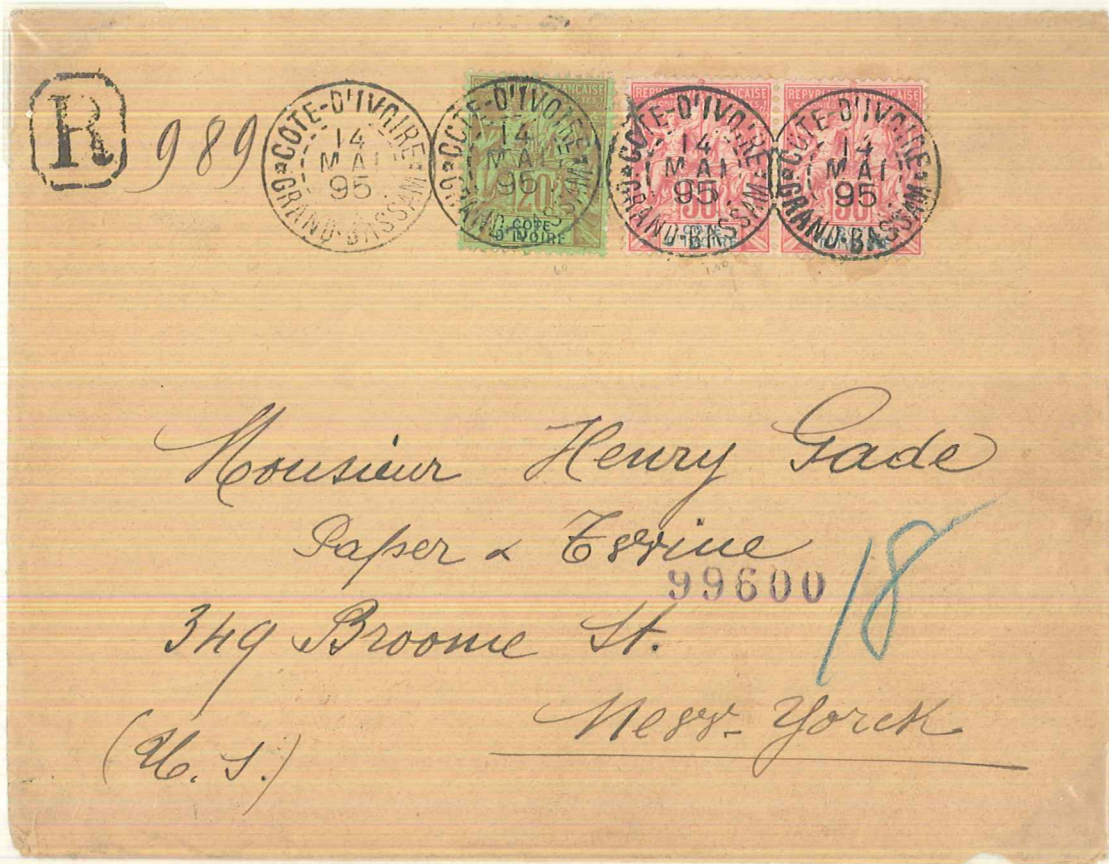 R 989
COTE-D'IVOIRE
14
MAI
95
GRAND-BASSAM
COTE-D'IVOIRE
14
MAI
95
GRAND-BASSAM
20
COTE
D'IVOIRE
REPUBLIQUE FRANÇAISE
COTE-D'IVOIRE
14
MAI
95
GRAND-BASSAM
REPUBLIQUE FRANÇAISE
COTE-D'IVOIRE
14
MAI
95
GRAND-BASSAM
Monsieur Henry Gade
Paper &
99600
18
349 Broome St.
New-Yorck
(U. S.)